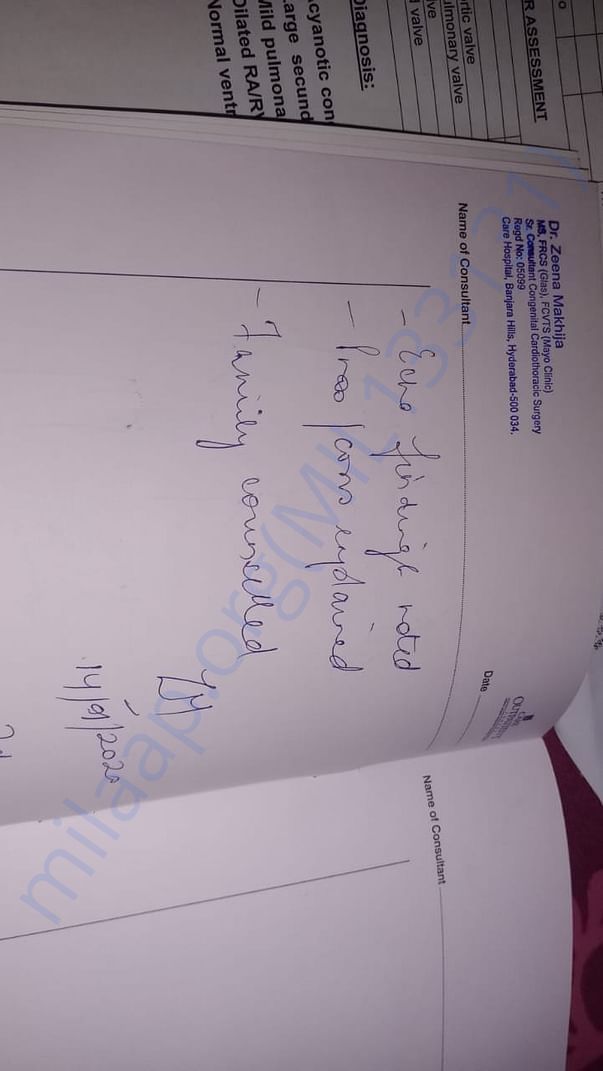 R ASSESSMENT
ortic valve
ulmonary valve
lve
valve
Diagnosis:
cyanotic con
arge secund
Mild pulmona
Dilated RA/RV
Normal ventr
Dr. Zeena Makhija
MS, FRCS (Glas), FCVTS (Mayo Clinic)
Sr. Consultant Congenital Cardiothoracic Surgery
Regd No: 05099
Care Hospital, Banjara Hills, Hyderabad-500 034.
Name of Consultant
Date
- Echo findings noted
- Pros/cons explained
- Family counselled
ZM
14/9/2020
Name of Consultant
milaap.org(MIL